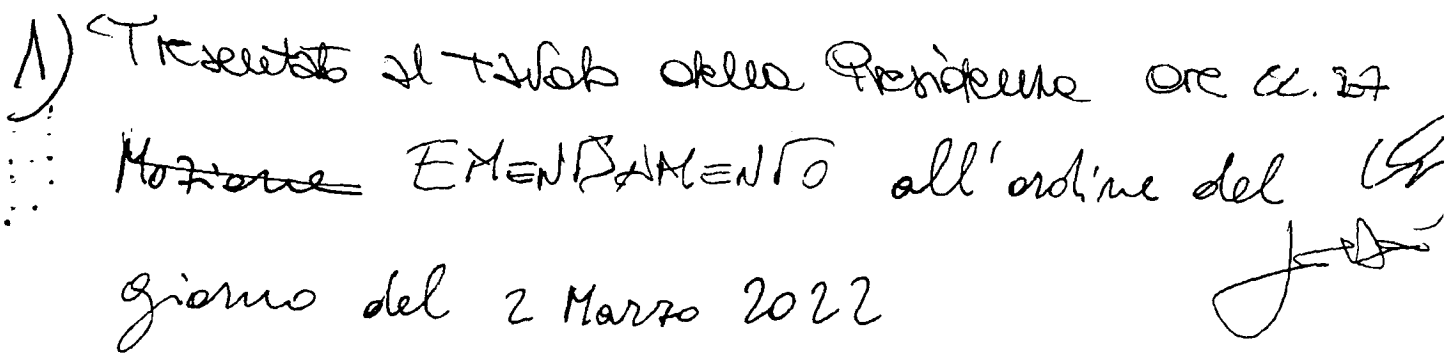 1) Presentato al tavolo della Presidenza ore 11.27
Mozione EMENDAMENTO all'ordine del
giorno del 2 Marzo 2022